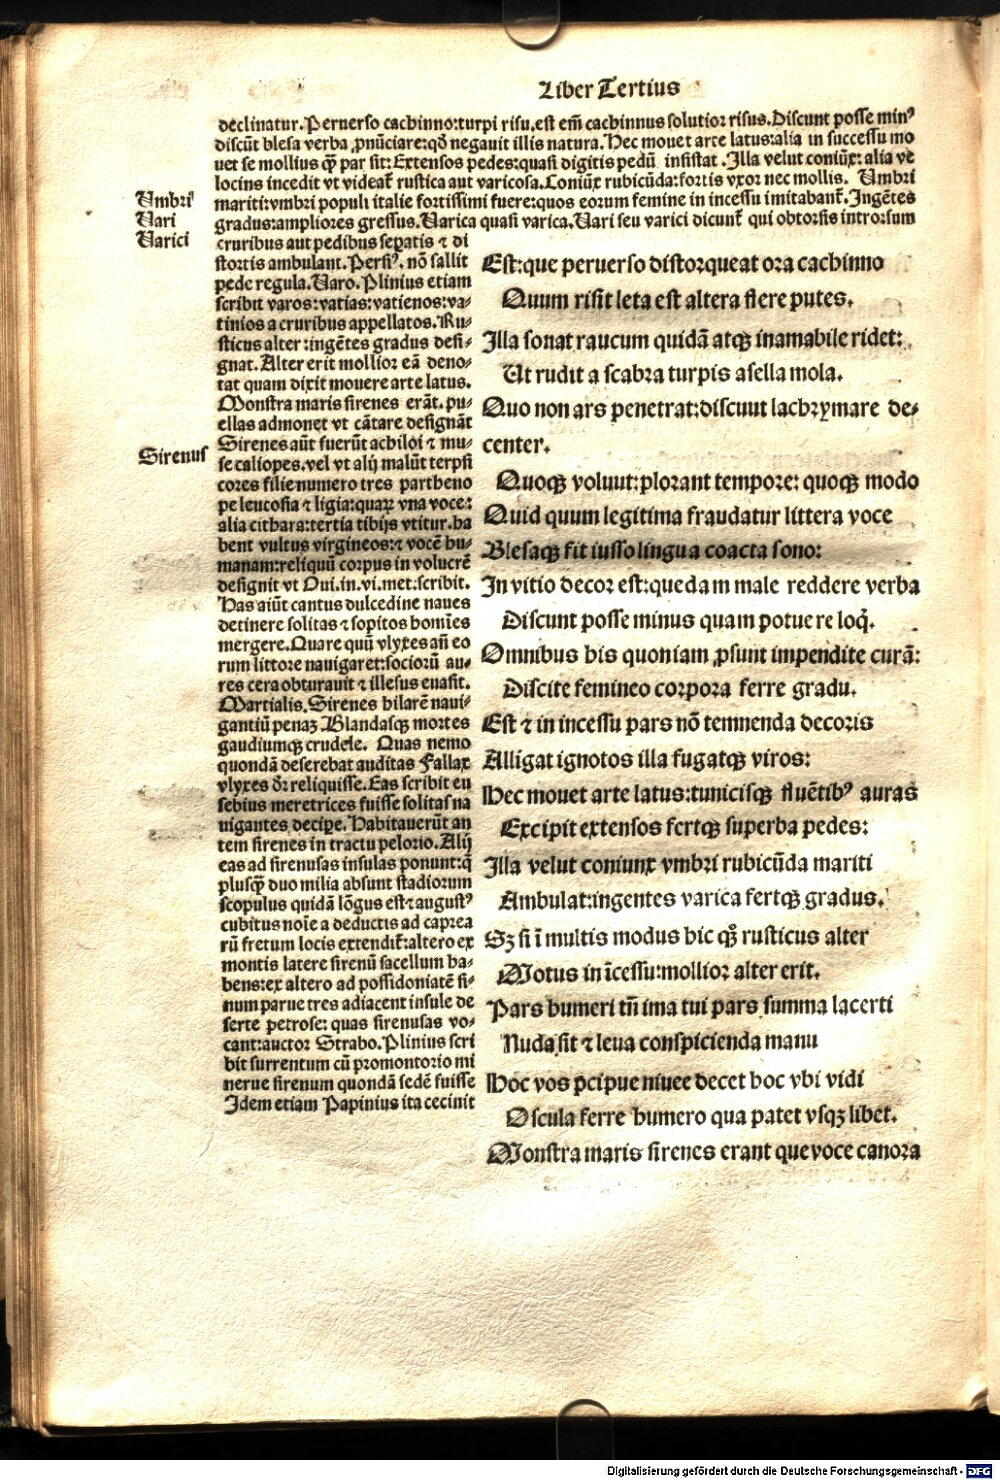 Liber Tertius
declinatur. Peruerso cachinno: turpi risu. est em̄ cachinnus solutior risus. Discunt posse minꝰ
discūt blesa verba ꝓnūciare: qđ negauit illis natura. Hec mouet arte latus: alia in successu mo
uet se mollius q̄ꝫ par sit: Extensos pedes: quasi digitis pedū insistat. Illa velut coniūx: alia ve
locius incedit vt videat᷑ rustica aut varicosa. Coniūx rubicūda: fortis vxor nec mollis. Umbri
mariti: vmbri populi italie fortissimi fuere: quos eorum femine in incessu imitabant᷑. Ingētes
gradus: ampliores gressus. Varica quasi varica. Vari seu varici dicunt᷑ qui obtorsis introrsum
Umbri
Vari
Varici
cruribus aut pedibus sepatis ⁊ di
stortis ambulant. Persiꝰ. nō fallit
pede regula. Varo. Plinius etiam
scribit varos: vatias: vatienos: va-
tinios a cruribus appellatos. Ru-
sticus alter: ingētes gradus desi-
gnat. Alter erit mollior eā deno-
tat quam dixit mouere arte latus.
Monstra maris sirenes erāt. pu-
ellas admonet vt cātare designāt
Sirenus
Sirenes aūt fuerūt achiloi ⁊ mu-
se caliopes. vel vt alij malūt terpsi
cores filie numero tres partheno
pe leucosia ⁊ ligia: quaꝝ vna voce:
alia cithara: tertia tibijs vtitur. ha
bent vultus virgineos: ⁊ vocē hu-
manam: reliquū corpus in volucrē
designit vt Oui. in. vi. met. scribit.
Has aiūt cantus dulcedine naues
detinere solitas ⁊ sopitos homies
mergere. Quare quū vlyxes añ eo
rum littore nauigaret: sociorū au-
res cera obturauit ⁊ illesus euasit.
Martialis. Sirenes hilarē naui-
gantiū penaꝫ Blandasqꝫ mortes
gaudiumqꝫ crudele. Quas nemo
quondā deserebat auditas Fallax
vlyxes dr̄ reliquisse. Eas scribit eu
sebius meretrices fuisse solitas na
uigantes decipe. Habitauerūt an
tem sirenes in tractu pelorio. Alij
eas ad sirenusas insulas ponunt: q̄
plusq̄ꝫ duo milia absunt stadiorum
scopulus quidā lōgus est ⁊ augustꝰ
cubitus noīe a deductis ad caprea
rū fretum locis extendit᷑: altero ex
montis latere sirenū sacellum ha-
bens: ex altero ad possidoniatē si-
num parue tres adiacent insule de
serte petrose: quas sirenusas vo-
cant: auctor Strabo. Plinius scri
bit surrentum cū promontorio mi
nerue sirenum quondā sedē fuisse
Idem etiam Papinius ita cecinit
Est: que peruerso distorqueat ora cachinno
Quum risit leta est altera flere putes.
Illa sonat raucum quidā atqꝫ inamabile ridet:
Ut rudit a scabra turpis asella mola.
Quo non ars penetrat: discuut lachrymare de-
center.
Quoqꝫ voluut: plorant tempore: quoqꝫ modo
Quid quum legitima fraudatur littera voce
Blesaqꝫ fit iusso lingua coacta sono:
In vitio decor est: quedam male reddere verba
Discunt posse minus quam potuere loq̄.
Omnibus his quoniam ꝓsunt impendite curā:
Discite femineo corpora ferre gradu.
Est ⁊ in incessu pars nō temnenda decoris
Alligat ignotos illa fugatqꝫ viros:
Hec mouet arte latus: tunicisqꝫ fluētibꝰ auras
Excipit extensos fertqꝫ superba pedes:
Illa velut coniunx vmbri rubicūda mariti
Ambulat: ingentes varica fertqꝫ gradus.
Sꝫ si ī multis modus hic qꝫ rusticus alter
Motus in īcessu: mollior alter erit.
Pars humeri tn̄ ima tui pars summa lacerti
Nuda sit ⁊ leua conspicienda manu
Hoc vos pcipue niuee decet hoc vbi vidi
Oscula ferre humero qua patet vsqꝫ libet.
Monstra maris sirenes erant que voce canora
Digitalisierung gefördert durch die Deutsche Forschungsgemeinschaft - DFG